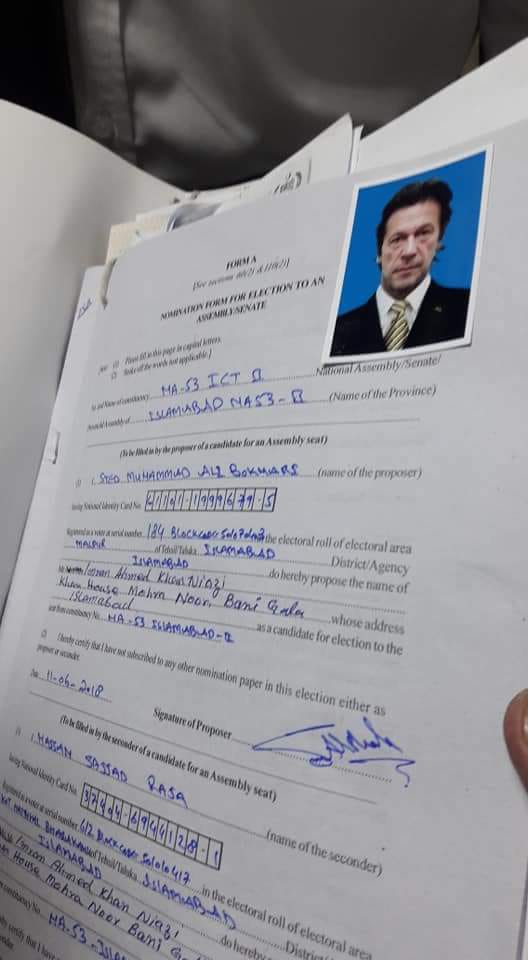 FORM A
[See sections 60(2) & 110(2)]
NOMINATION FORM FOR ELECTION TO AN
ASSEMBLY/SENATE
Note: (1) Please fill in this page in capital letters.
(2) Strike off the words not applicable.]
No and Name of constituency NA-53 ICT II National Assembly/Senate/
Provincial Assembly of ISLAMABAD NA53-II (Name of the Province)
(To be filled in by the proposer of a candidate for an Assembly seat)
(1) I, SYED MUHAMMAD ALI BOKHARI (name of the proposer)
having National Identity Card No.
Registered as a voter at serial number 184 BLOCKCODE the electoral roll of electoral area
MALPUR of Tehsil/Taluka ISLAMABAD District/Agency
ISLAMABAD do hereby propose the name of
Imran Ahmed Khan Niazi
Khan House Mohra Noor, Bani Gala whose address
Islamabad as a candidate for election to the
seat from constituency No. NA-53 ISLAMABAD-II
(2) I hereby certify that I have not subscribed to any other nomination paper in this election either as
proposer or seconder.
Date 11-06-2018
Signature of Proposer
(To be filled in by the seconder of a candidate for an Assembly seat)
(1) I, HASSAN SAJJAD RASA (name of the seconder)
having National Identity Card No.
Registered as a voter at serial number 612 BLOCKCODE in the electoral roll of electoral area
of Tehsil/Taluka ISLAMABAD District
ISLAMABAD do hereby
Imran Ahmed Khan Niazi
House Mohra Noor Bani
constituency No. NA-53-
certify that I have